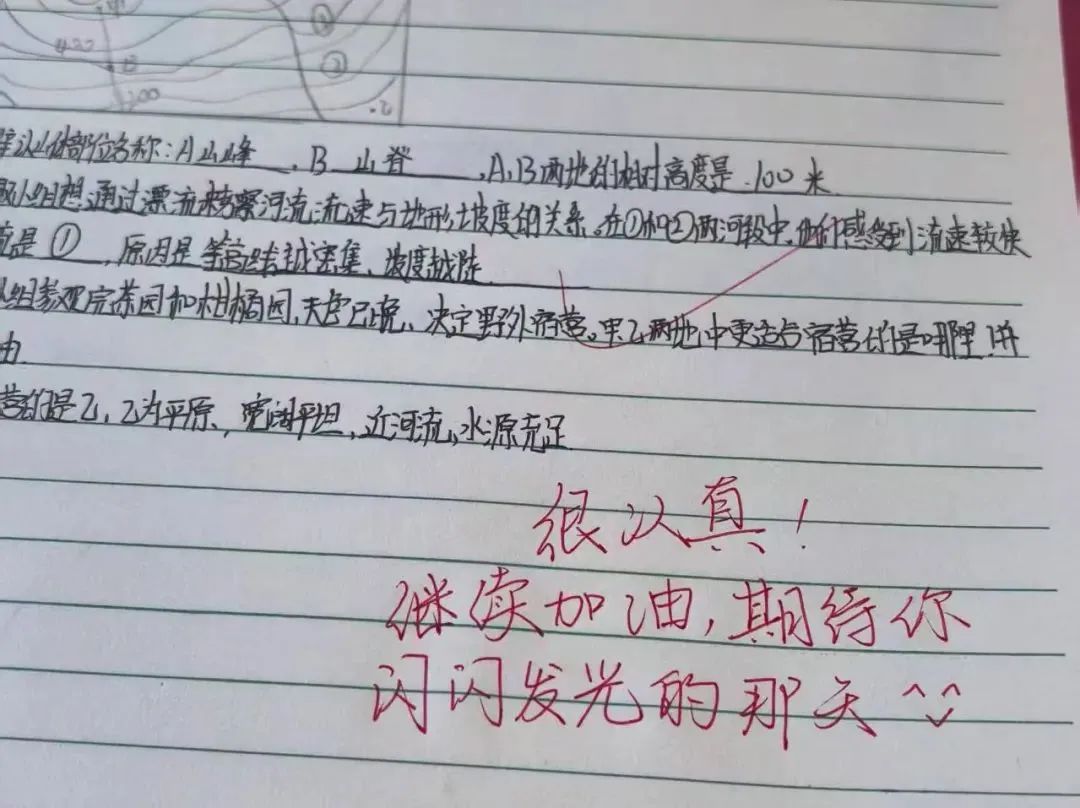 ①
②
400
B
200
.乙
认山体部位名称:A山峰,B 山脊,A、B两地的相对高度是 100 米
小组想通过漂流探察河流流速与地形坡度的关系。在①和②两河段中,他们感受到流速较快
是 ①,原因是 等高线越密集、坡度越陡
组参观完茶园和柑橘园,天色已晚、决定野外宿营。甲乙两地中更适合宿营的是哪里!并
由
营的是乙,乙为平原,宽阔平坦,近河流,水源充足
很认真!
继续加油,期待你
闪闪发光的那天^^